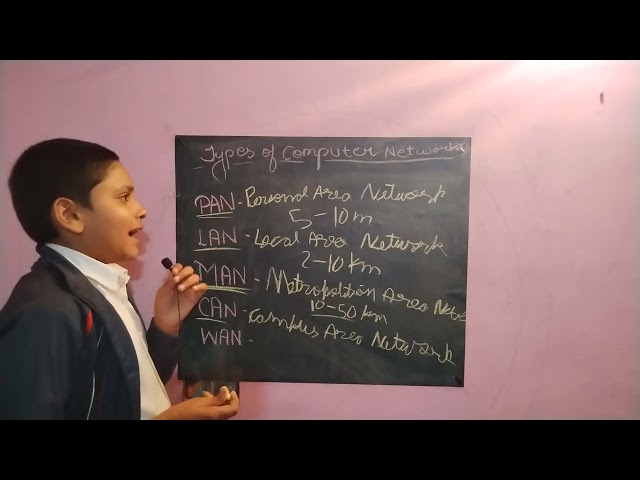 Types of Computer Network
PAN - Personal Area Network
5-10m
LAN - Local Area Network
2-10 Km
MAN - Metropolitian Area Netw
10-50 km
CAN - Campus Area Network
WAN -